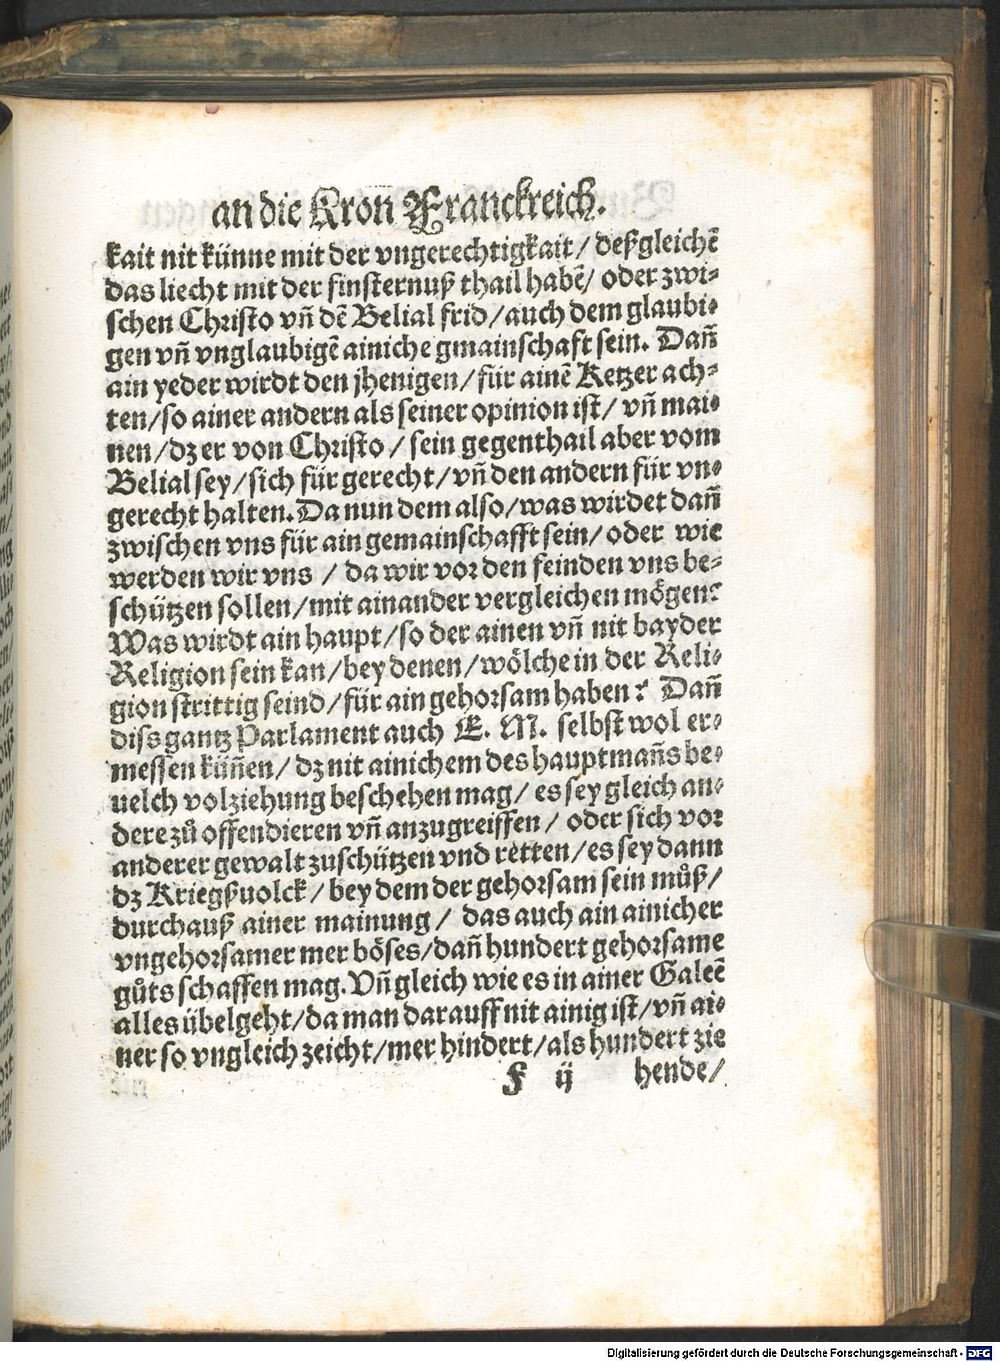 an die Kron̄ Franckreich.
kait nit künne mit der vngerechtigkait / deßgleichē
das liecht mit der finsternuß thail habē / oder zwi⸗
schen Christo vn̄ dē Belial frid / auch dem glaubi⸗
gen vn̄ vnglaubigē ainiche gmainschafft sein. Dan̄
ain yeder wirdt den jhenigen / für ainē Ketzer ach⸗
ten / so ainer andern als seiner opinion ist / vn̄ mai⸗
nen / dz er von Christo / sein gegenthail aber vom
Belial sey / sich für gerecht / vn̄ den andern für vn⸗
gerecht halten. Da nun dem also / was wirdet dan̄
zwischen vns für ain gemainschafft sein / oder wie
werden wir vns / da wir vor den feinden vns be⸗
schützen sollen / mit ainander vergleichen mögen?
Was wirdt ain haupt / so der ainen vn̄ nit bayder
Religion sein kan / bey denen / wölche in der Reli⸗
gion strittig seind / für ain gehorsam haben? Dan̄
diss gantz Parlament auch E. M. selbst wol er⸗
messen kün̄en / dz nit ainichem des hauptman̄s be⸗
uelch volziehung beschehen mag / es sey gleich an⸗
dere zů offendieren vn̄ anzugreiffen / oder sich vor
anderer gewalt zuschützen vnd retten / es sey dann
dz Kriegßuolck / bey dem der gehorsam sein můß /
durchauß ainer mainung / das auch ain ainicher
vngehorsamer mer böses / dan̄ hundert gehorsame
gůts schaffen mag. Vn̄ gleich wie es in ainer Galeē
alles übel geht / da man darauff nit ainig ist / vn̄ ai⸗
ner so vngleich zeicht / mer hindert / als hundert zie
F ij hende /
Digitalisierung gefördert durch die Deutsche Forschungsgemeinschaft - DFG